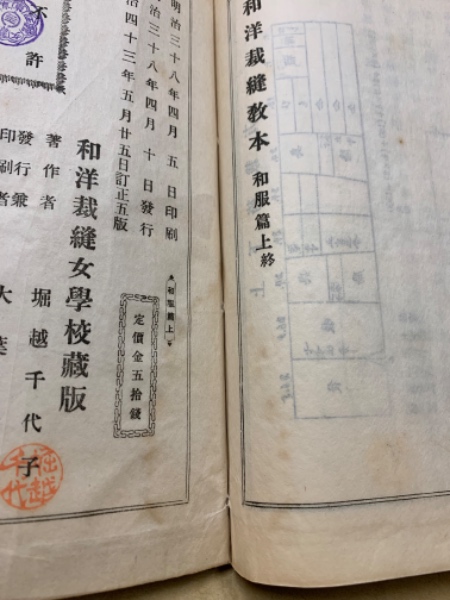 和洋裁縫教本 和服篇上終
明治三十八年四月五日印刷
治三十八年四月十日發行
治四十三年五月廿五日訂正五版
和服篇上
定價金五拾錢
和洋裁縫女學校藏版
著作者 堀越千代子
發行兼
印刷者 大葉
不許
堀越千代